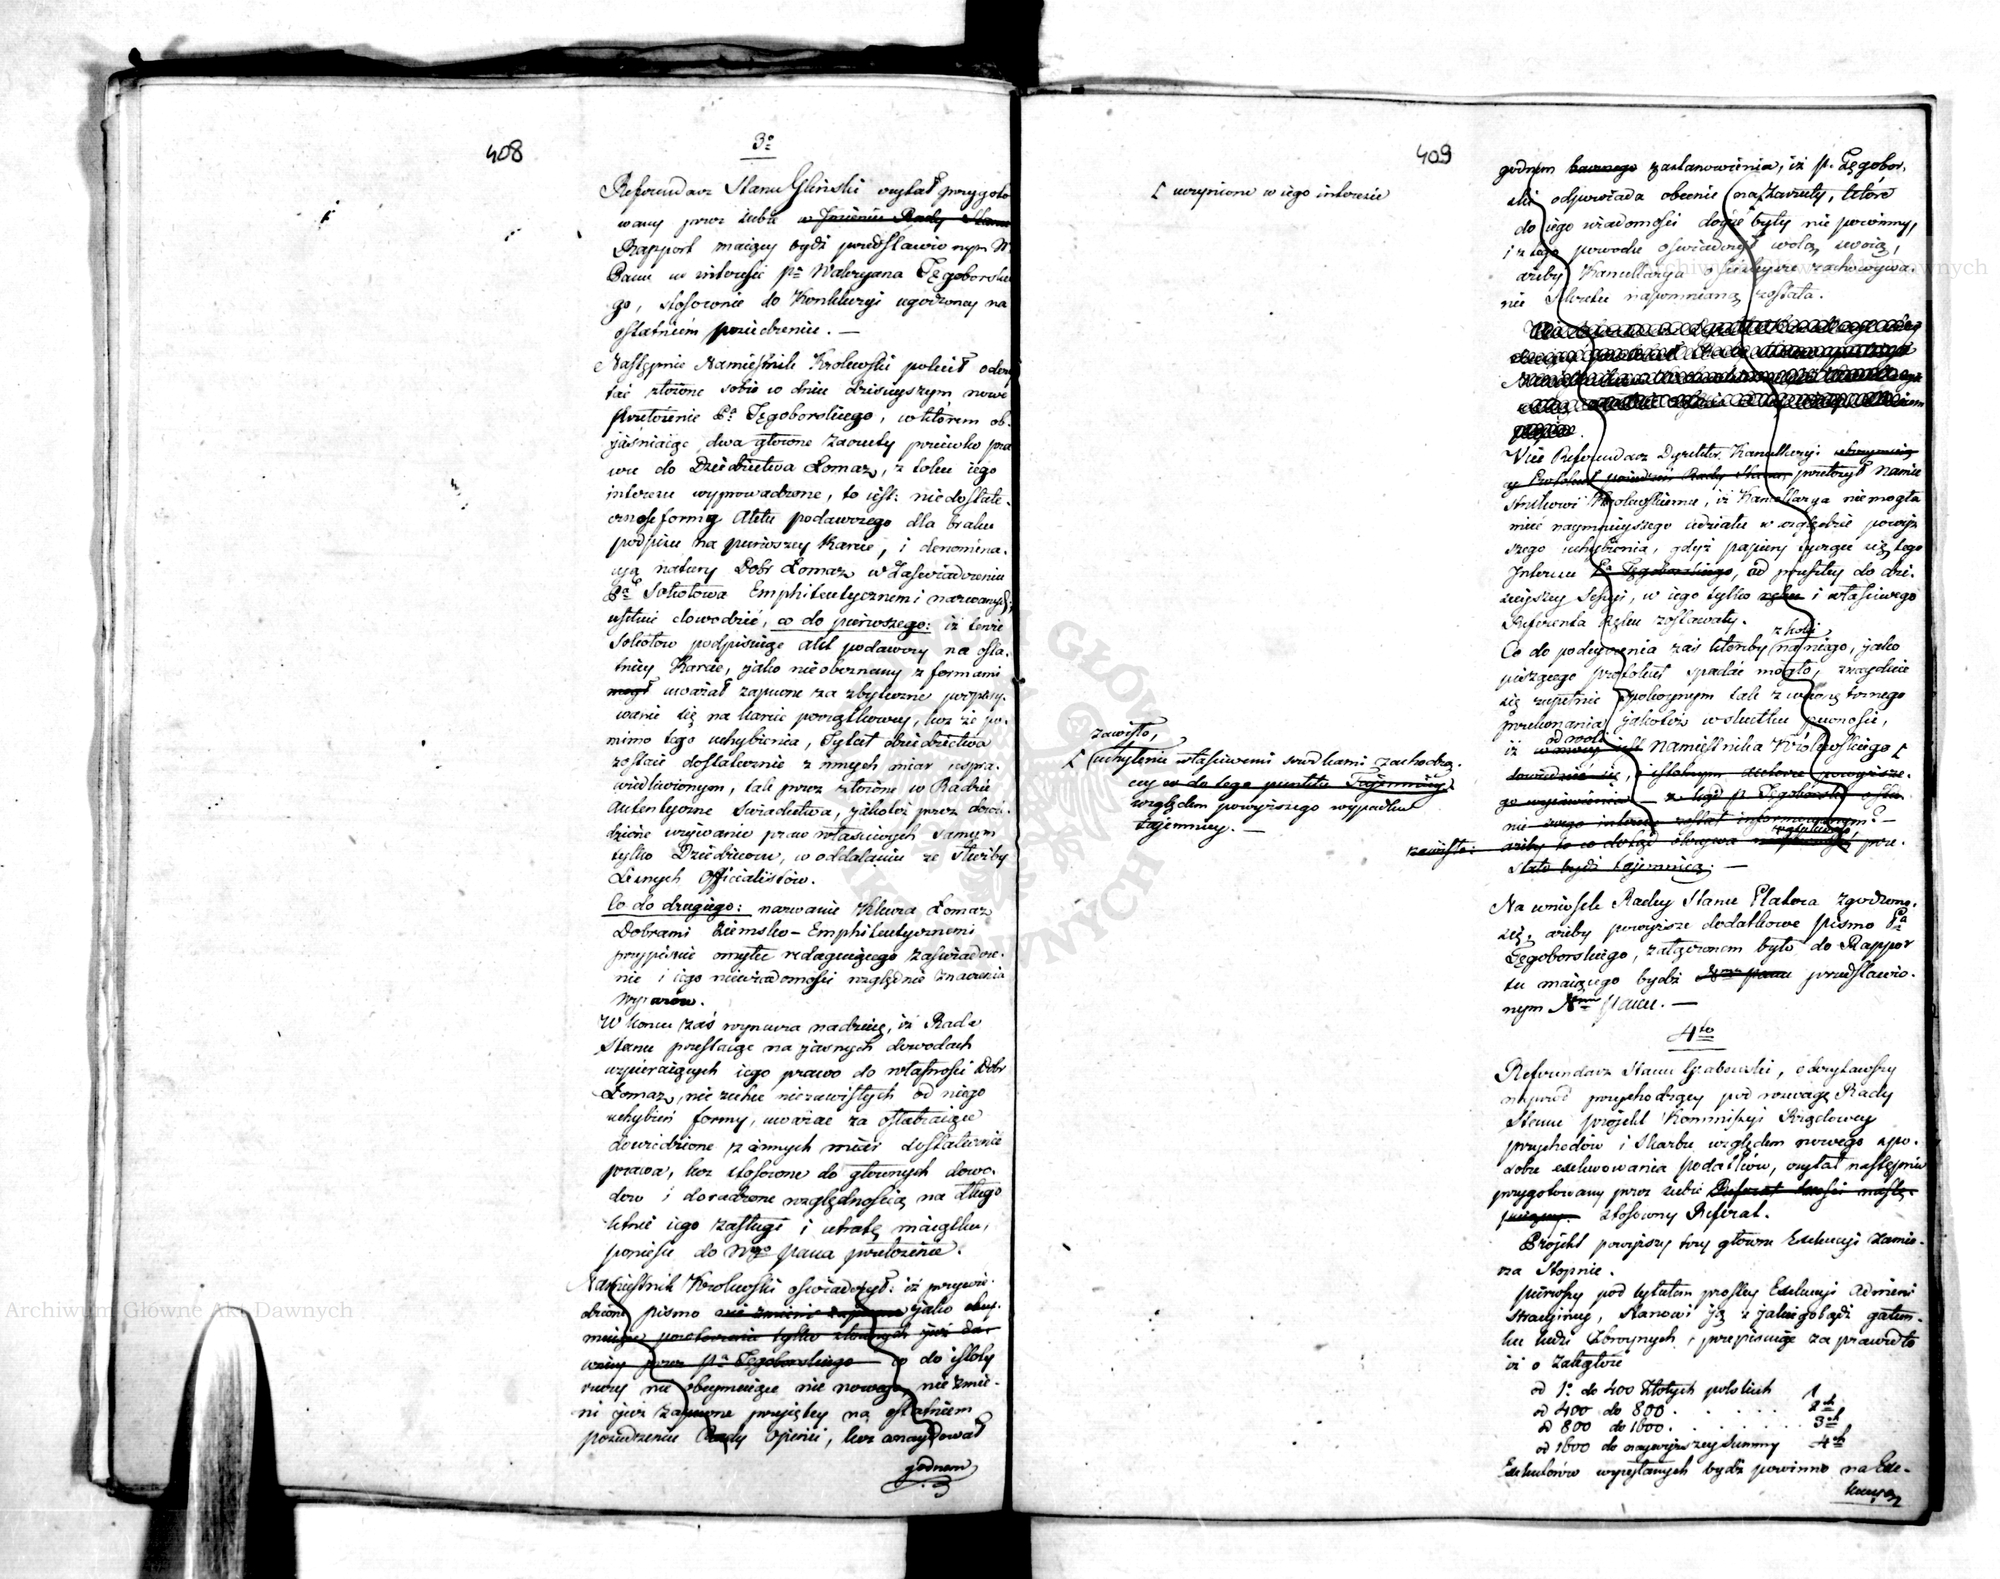 408
3º
Referendarz Stanu Gliński czytał przygoto
wany przez siebie w Imieniu Rady Stanu
Rapport maiący bydź przedstawionym N.
Panu w interesie pª Waleryana Tęgoborskie
go, stosownie do Konkluzyi ugodzoney na
ostatniem posiedzeniu. —
Następnie Namiestnik Krolewski polecił odczy
tać złożone sobie w dniu dzisieyszym nowe
przełożenie Pª Tęgoborskiego, w którem ob-
jaśniaiąc dwa główne zarzuty przeciwko pra
wu do Dziedzictwa Łomaz, z toku iego
interesu wyprowadzone, to iest: niedostate-
czność formy Aktu podawczego dla braku
podpisu na pierwszey Karcie, i denomina-
cyą natury Dobr Łomaz w Zaświadczeniu
Pª Sokołowa Emphiteutycznemi nazwanych;
usiłuie dowodzić, co do pierwszego: iż tenże
Sokołow podpisuiąc Akt podawczy na osta-
tniey Karcie, jako nieobeznany z formami
mogł uważał zapewne za zbyteczne podpisy-
wanie się na karcie początkowey, lecz że po-
mimo tego uchybienia, Tytuł dziedzictwa
zostaie dostatecznie z innych miar uspra-
wiedliwionym, tak przez złożone w Radzie
autentyczne świadectwa, jakoteż przez dowie-
dzione używanie praw właściwych samym
tylko Dziedzicom, w oddalaniu ze służby
Leśnych Officialistów.
Co do drugiego: nazwanie Klucza Łomaz
Dobrami Ziemsko-Emphiteutycznemi
przypisuie omyłce redaguiącego zaświadcze-
nie i iego niewiadomości względnie znaczenia
wyrazów.
W końcu zaś wynurza nadzieię, iż Rada
Stanu przestaiąc na jasnych dowodach
wspieraiących iego prawo do własności Dobr
Łomaz, nie zechce niezawisłych od niego
uchybień formy, uważać za osłabiaiące
dowiedzione z innych miar dostatecznie
prawa, lecz stosowne do głownych dowo-
dow i doradzone względnością na długo
letnie iego zasługi i utratę maiątku,
poniesie do Ngo Pana przełożenie.
Namiestnik Krolewski oświadczył: iż przywie-
dzione pismo nie zmieni zapewne jako obey-
muiące powtorzenia tylko złożonych już da-
wniey przez pª Tęgoborskiego co do istoty
rzeczy nie obeymuiąc nic nowego, nie zmie-
ni już zapewne przyiętey na ostatniem
posiedzeniu Rady Opinii, lecz znaydował
godnem
409
[ uczynione w iego interesie
godnem bacznego zastanowienia, iż p. Tęgobor-
ski odpowiada obecnie na zarzuty, które
do iego wiadomości doyść były nie powinny,
i z tego powodu oświadczył wolą swoią,
ażeby Kancellarya o ścisłeysze zachowywa-
nie Sekretu napomnianą została.
Vice Referendarz Dyrektor Kancellaryi obeymuią
cy Protokół posiedzeń Rady Stanu, przełożył Namie
stnikowi Krolewskiemu, iż Kancellarya nie mogła
mieć naymnieyszego udziału w względzie powyż
szego uchybienia, gdyż papiery tyczące się tego
Interesu Pª Tęgoborskiego, od przeszłey do dzi-
sieyszey Sessyi, w iego tylko ręku i właściwego
Referenta ręku zostawały.
z kolei
Co do podeyrzenia zaś któreby na niego, jako
piszącego protokuł spadać mogło, znayduie
się zupełnie spokoynym tak z własnego
przekonania jakoteż w skutku pewności,
od woli
iż w mocy iest Namiestnika Królewskiego [
dowiedzieć się, o istotnym autorze powyższe-
go wyiawienia — z kąd p. Tęgoborski o sta-
nie swego interesu został informowanym? —
zawisło: ażeby to co dotąd okrywa naystarannieyszą prze-
stało bydź tajemnicą. —
zawisło,
[ uchylenie właściwemi środkami zachodzą-
cey co do tego punktu Tajemnicy
względem powyższego wypadku
tajemnicy. —
Na wniosek Radcy Stanu Platera zgodzono
się, ażeby powyższe dodatkowe pismo Pª
Tęgoborskiego, załączonem było do Rappor
tu maiącego bydź przedstawio-
nym Nmu Panu. —
4to
Referendarz Stanu Grabowski, odczytawszy
naprzód przychodzący pod rozwagę Rady
Stanu projekt Kommissyi Rządowey
przychodów i Skarbu względem nowego spo-
sobu exekwowania podatków, czytał następnie
przygotowany przez siebie Referat treści nastę-
puiącey: stosowny Referat.
Projekt powyższy trzy główne Exekucyi zamie-
rza Stopnie.
Pierwszy pod tytułem prostey Exekucyi Admini
stracyiney, stanowi ją z jakiegobądź gatun-
ku ludzi Zbroynych, przepisuiąc za prawidło
iż o zaległość
od 1º do 400 Złotych polskich 1
od 400 do 800 . . . . . . 2ch
od 800 do 1600 . . . . . . 3ch
od 1600 do naywyższey Summy 4ch
Exekutorów wysyłanych bydź powinno na Exe-
kucyą